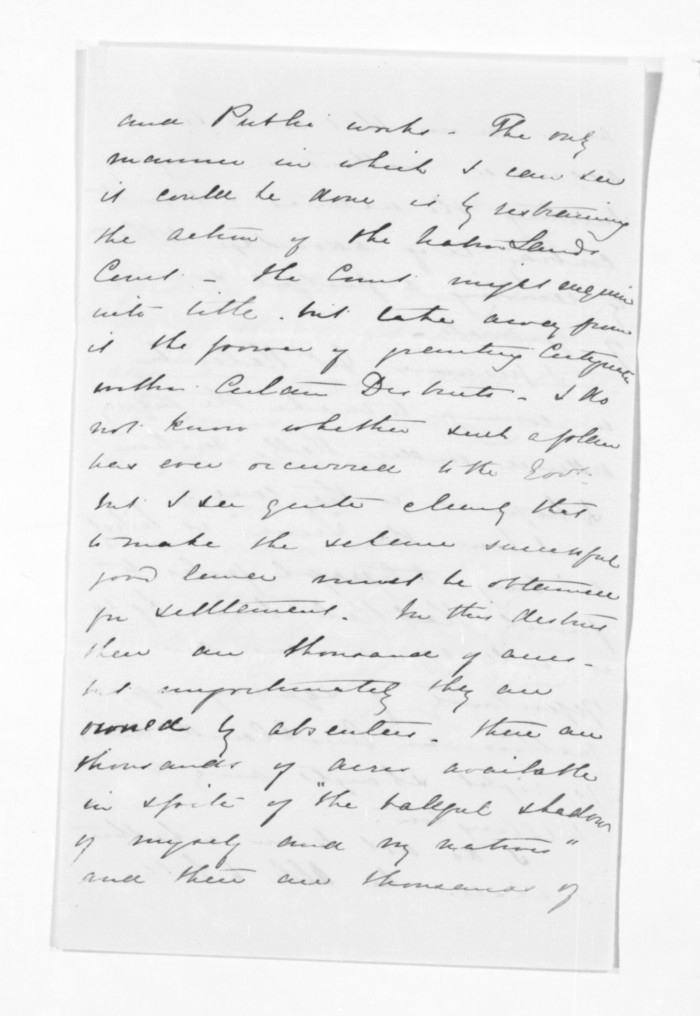 and Public works - The only
manner in which I can see
it could be done is by restraining
the action of the Native Lands
Court - the Court might enquire
into title. but take away from
it the power of granting Certificates
within Certain Districts - I do
not know whether such a plan
has ever occurred to the Govt.
but I see quite clearly that
to make the scheme successful
good land must be obtained
for settlement. In this district
there are thousand of acres -
but unfortunately they are
owned by absentees. There are
thousands of acres available
in spite of "the baleful shadow
of myself and my natives"
and there are thousands of